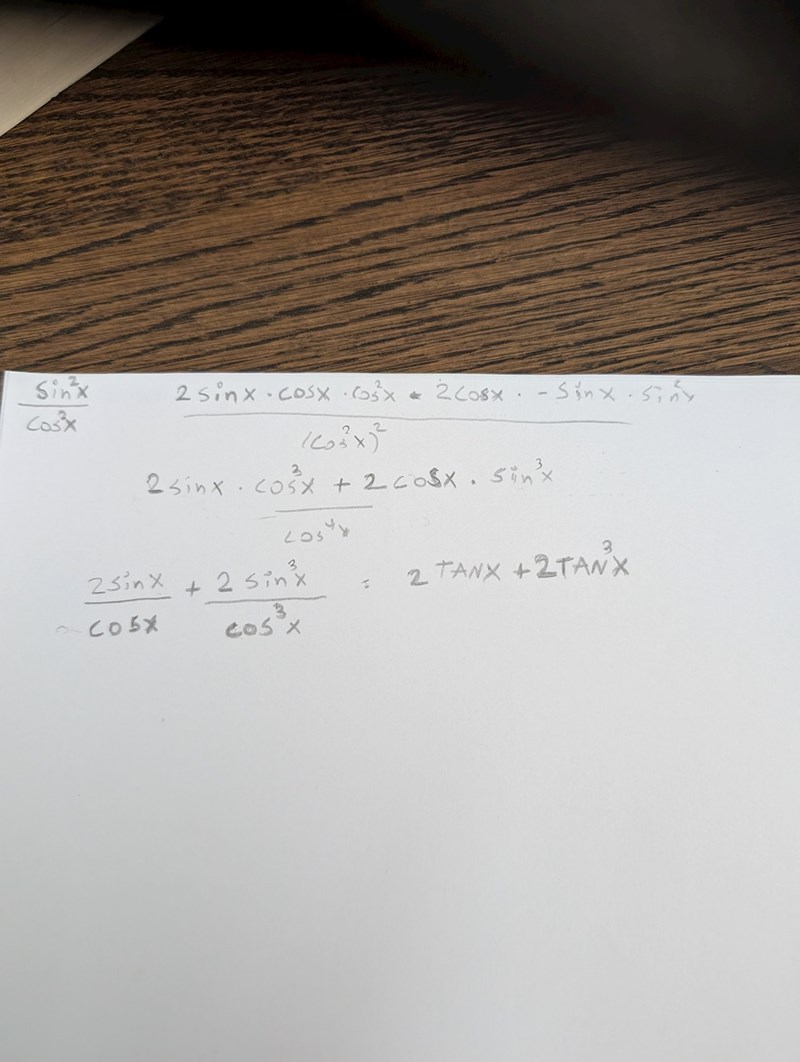 sin²x / cos²x    2 sinx · cosx · cos²x - 2cosx · - sinx · sin²x / (cos²x)²
2 sinx · cos³x + 2 cosx · sin³x / cos⁴x
2sinx / cosx + 2 sin³x / cos³x = 2 TANX + 2TAN³X